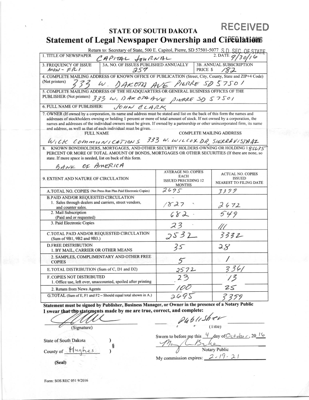 RECEIVED
STATE OF SOUTH DAKOTA
Statement of Legal Newspaper Ownership and Circulation
Return to: Secretary of State, 500 E. Capitol, Pierre, SD 57501-5077
S.D. SEC. OF STATE
1. TITLE OF NEWSPAPER
CAPITAL JOURNAL
2. DATE
9/30/16
3. FREQUENCY OF ISSUE
MON - FRI
3A. NO. OF ISSUES PUBLISHED ANNUALLY
257
3B. ANNUAL SUBSCRIPTION PRICE $ 182
4. COMPLETE MAILING ADDRESS OF KNOWN OFFICE OF PUBLICATION (Street, City, County, State and ZIP+4 Code)
(Not printers)
333 W DAKOTA AVE PIERRE SD 57501
5. COMPLETE MAILING ADDRESS OF THE HEADQUARTERS OR GENERAL BUSINESS OFFICES OF THE
PUBLISHER (Not printer)
333 W. DAKOTA AVE PIERRE SD 57501
6. FULL NAME OF PUBLISHER:
JOHN CLARK
7. OWNER (If owned by a corporation, its name and address must be stated and
FULL NAME
COMPLETE MAILING ADDRESS
WICK COMMUNICATIONS 333 W WILCOX DR
8. KNOWN BONDHOLDERS, MORTGAGEES, AND OTHER SECURITY HOLDERS OWNING OR HOLDING 1
PERCENT OR MORE OF TOTAL AMOUNT OF BONDS, MORTGAGES OR OTHER SECURITIES (If there are none, so
state. If more space is needed, list on back of this form
BANK OF AMERICA
9. EXTENT AND NATURE OF CIRCULATION
AVERAGE NO. COPIES
EACH
ISSUE DURING PRECEDING 12
MONTHS
ACTUAL NO. COPIES
ISSUED
NEAREST TO FILING DATE
A. TOTAL NO. COPIES
2695 3399
B. PAID AND/OR REQUESTED CIRCULATION
1. Sales through dealers and carriers, street vendors,
and counter sales.
1827 2672
2. Mail Subscription
(Paid and or requested)
682 549
3. Paid Electronic Copies
23 111
C. TOTAL PAID AND/OR REQUESTED CIRCULATION
(Sum of 9B1, 9B2 and 9B3.)
2532 3332
D. FREE DISTRIBUTION
1. BY MAIL, CARRIER OR OTHER MEANS
35 28
2. SAMPLES, COMPLIMENTARY AND OTHER FREE
COPIES
5 1
E. TOTAL DISTRIBUTION (Sum of C, D1 and D2)
2572 3361
F. COPIES NOT DISTRIBUTED
1. Office use, left over, unaccounted, spoiled after printing
23 13
2. Return from News Agents
100 25
G. TOTAL (Sum of E, F1 and F2 - Should equal total shown in A.)
2695 3399
Statement must be signed by Publisher, Business Manager, or Owner in the presence of a Notary Public
I swear that the statements made by me are true, correct, and complete:
Publisher
(Signature) (Title)
State of South Dakota )
) §
County of Hughes )
Sworn to before me this 4 day of October, 20 16
Notary Public
My commission expires: 2-19-21
(Seal)
Form. SOS REC 051 9/2016